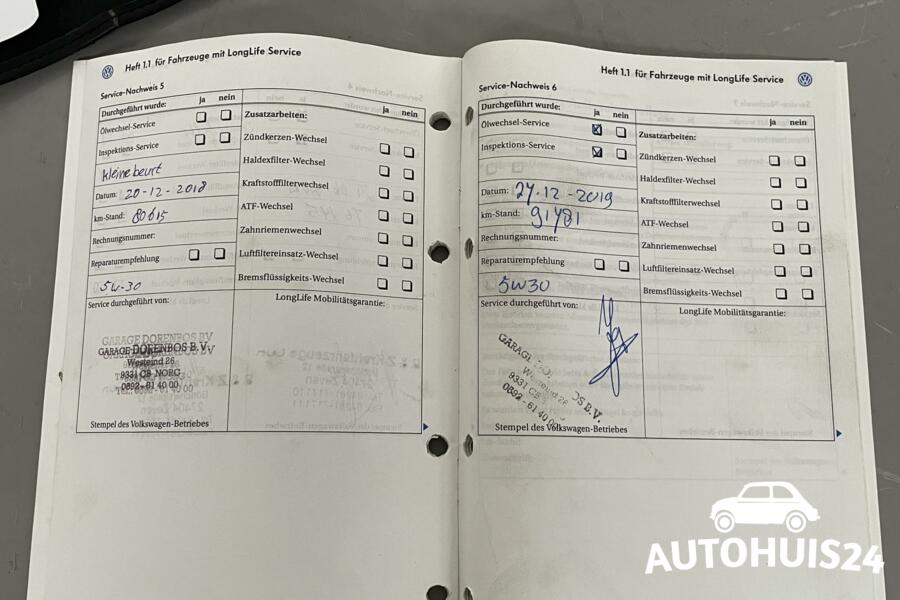 Heft 1.1 für Fahrzeuge mit LongLife Service
Service-Nachweis 5
Durchgeführt wurde: ja nein
Ölwechsel-Service
Inspektions-Service
kleine beurt
Datum: 20-12-2018
km-Stand: 80615
Rechnungsnummer:
Reparaturempfehlung
5W-30
Service durchgeführt von:
GARAGE DORENBOS B.V.
Westeind 26
9331 CB NORG
0592-61 40 00
Stempel des Volkswagen-Betriebes
ja nein
Zusatzarbeiten:
Zündkerzen-Wechsel
Haldexfilter-Wechsel
Kraftstofffilterwechsel
ATF-Wechsel
Zahnriemenwechsel
Luftfiltereinsatz-Wechsel
Bremsflüssigkeits-Wechsel
LongLife Mobilitätsgarantie:
Heft 1.1 für Fahrzeuge mit LongLife Service
Service-Nachweis 6
Durchgeführt wurde: ja nein
Ölwechsel-Service
Inspektions-Service
Datum: 24-12-2019
km-Stand: 91481
Rechnungsnummer:
Reparaturempfehlung
5W30
Service durchgeführt von:
Westeind 26
9331 CB
0592-61 40 00
Stempel des Volkswagen-Betriebes
ja nein
Zusatzarbeiten:
Zündkerzen-Wechsel
Haldexfilter-Wechsel
Kraftstofffilterwechsel
ATF-Wechsel
Zahnriemenwechsel
Luftfiltereinsatz-Wechsel
Bremsflüssigkeits-Wechsel
LongLife Mobilitätsgarantie:
AUTOHUIS24